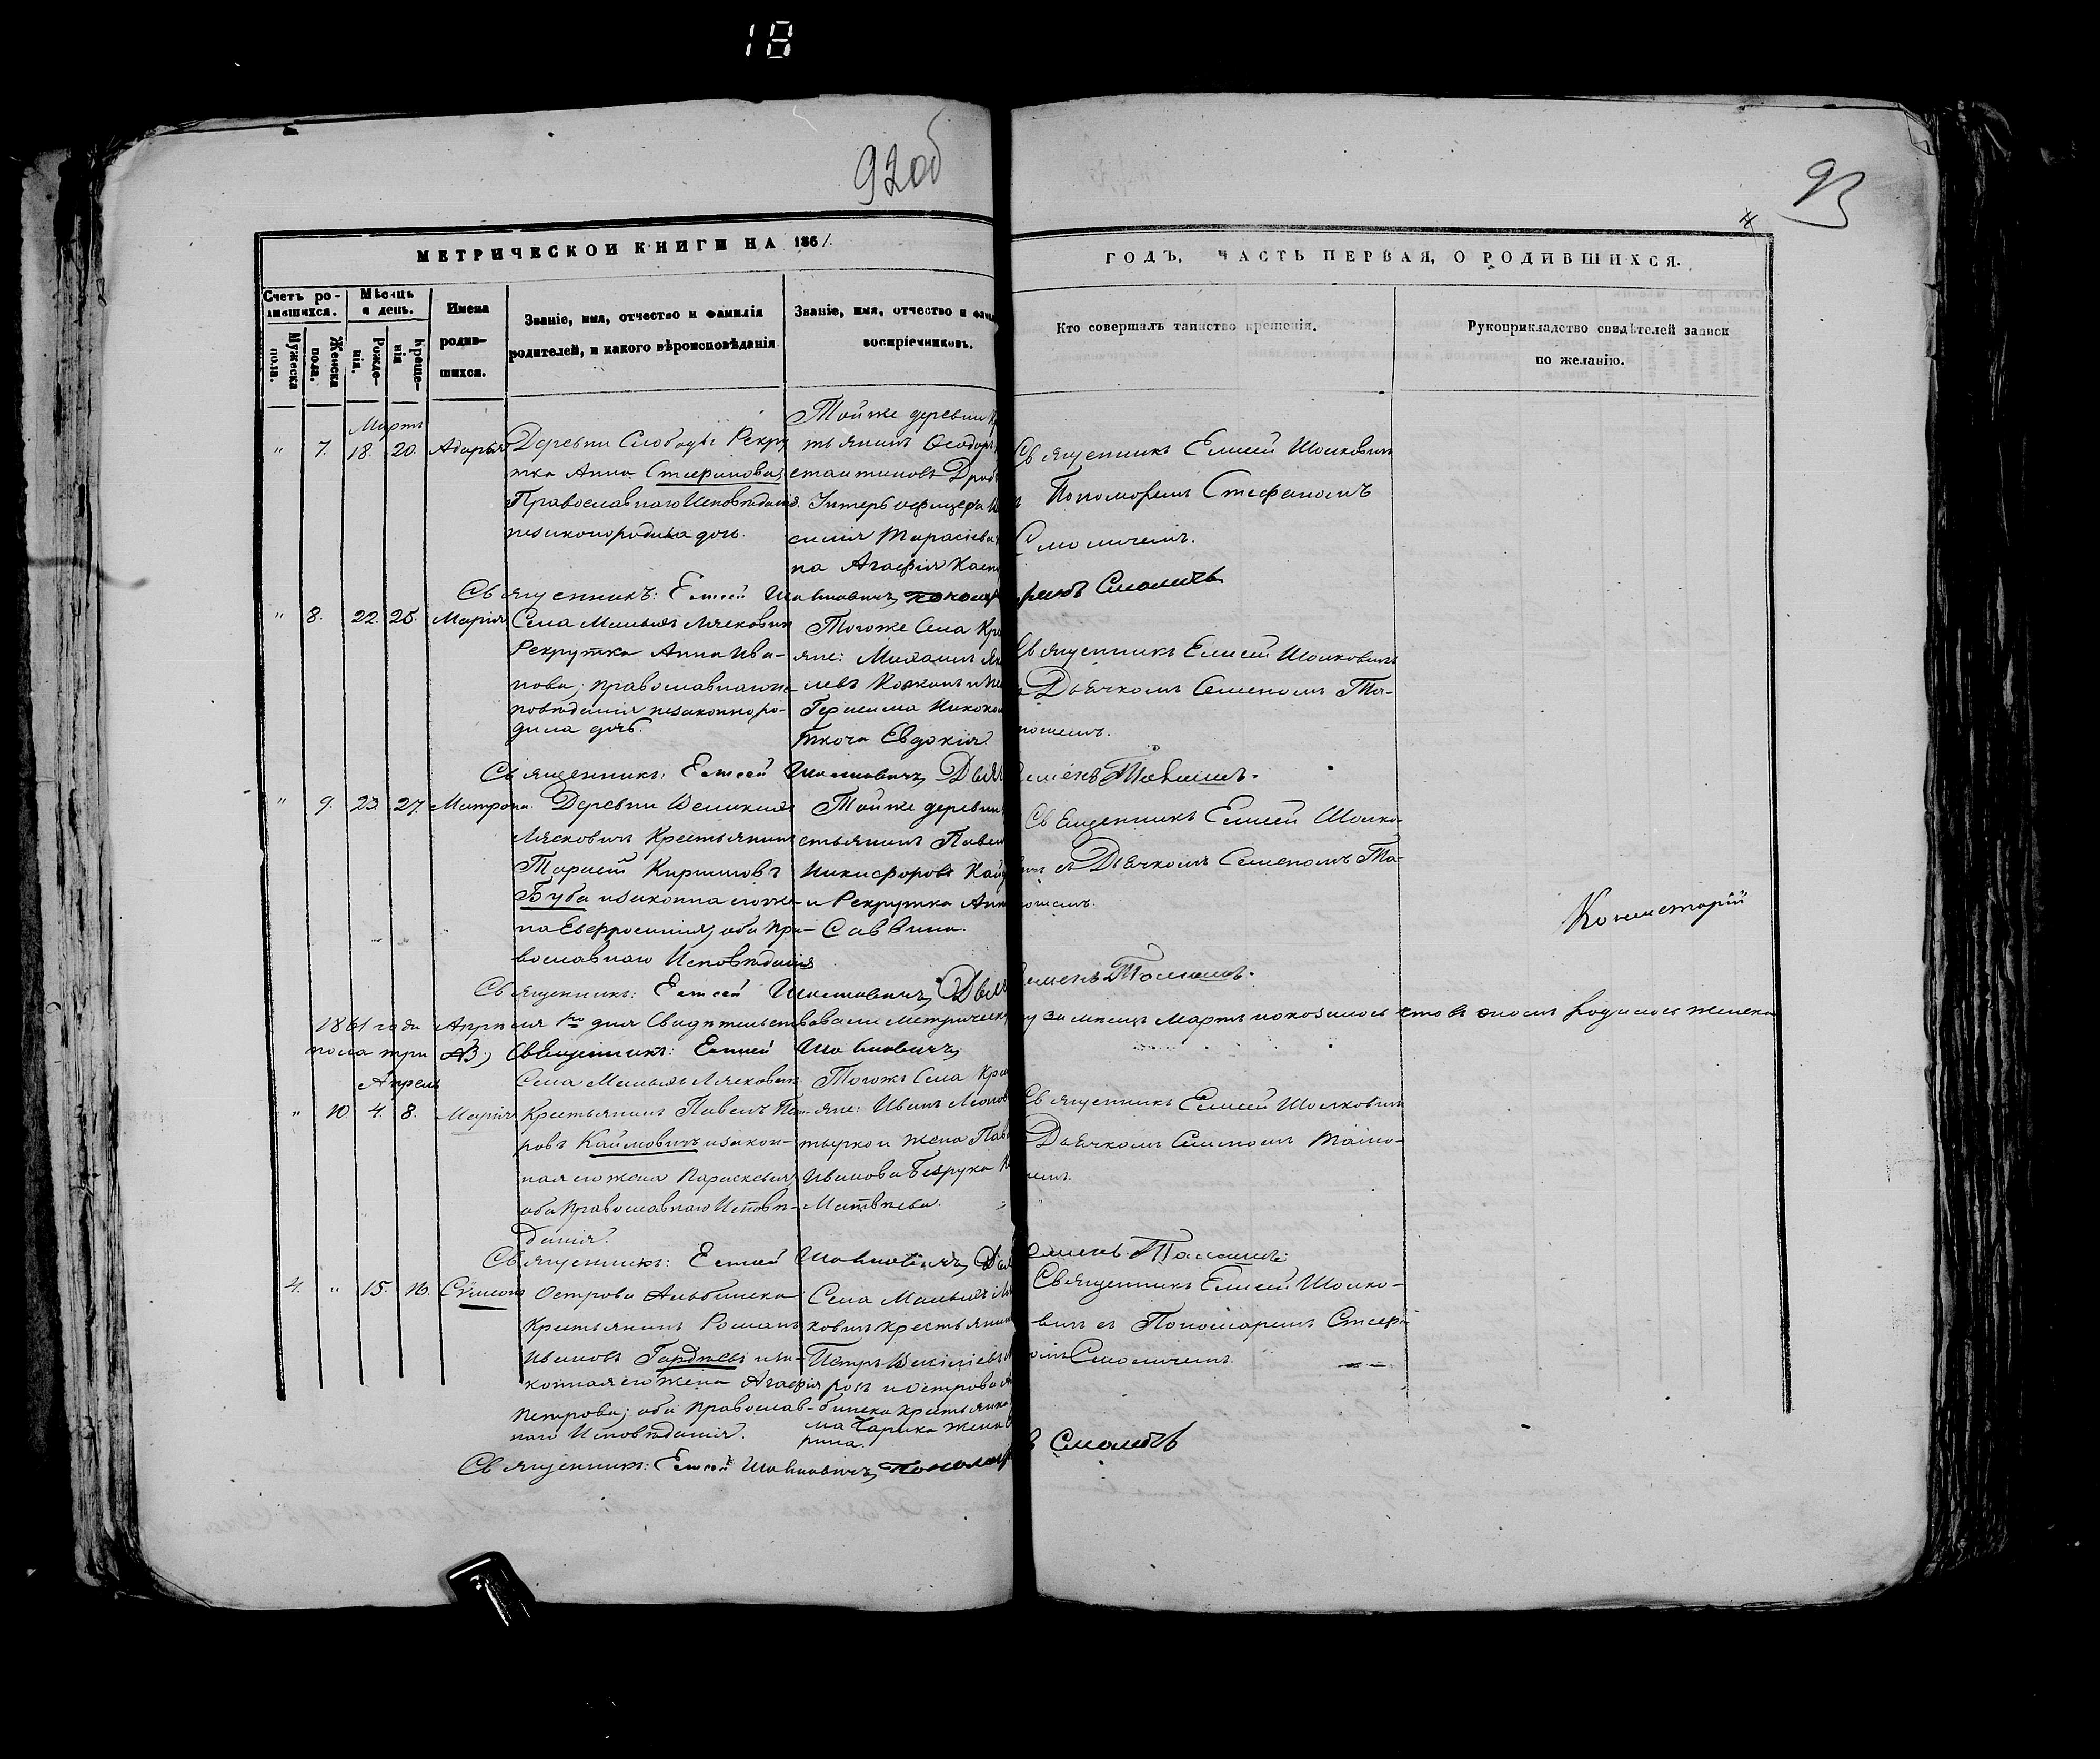 18
92 об
93
4
МЕТРИЧЕСКОЙ КНИГИ НА 1861.
ГОДЪ, ЧАСТЬ ПЕРВАЯ, О РОДИВШИХСЯ.
Счетъ родившихся.
Мужеска пола.
Женска пола.
Мѣсяцъ и день.
Рожденія.
Крещенія
Имена родившихся.
Званіе, имя, отчество и фамилія
родителей, и какого вѣроисповѣданія
Званіе, имя, отчество и фами
воспріемниковъ.
Кто совершалъ таинство крещенія.
Рукоприкладство свидѣтелей записи
по желанію.
Мартъ
" 7. 18. 20. Адарья
Деревни Слободы Рекру
тка Анна Стефанова,
Православнаго Исповѣданія.
незаконородила дочь.
Тойже деревни Кр
тьянинъ Ѳеодоръ
стантиновъ
Унтеръ офицера
силія Тарасіева
на Агафія
Священникъ Елисей Шолковичъ
Пономоремъ Стефаномъ
Смоличемъ.
Священникъ: Елисей Шолковичъ, Пономарь Смоличъ
" 8. 22. 25. Марія
Села Малыхъ Лясковичъ
Рекрутка Анна Ива-
нова, православнаго ис-
повѣданія незаконноро-
дила дочь.
Тогоже Села Кре
яне: Михаилъ Як
левъ
Герасима
Ткача Евдокія
Священникъ Елисей Шолковичъ
Дьячкомъ Семеномъ То-
Священникъ: Елисей Шолковичъ, Дьяч
" 9. 23. 27. Матрона.
Деревни Великихъ
Лясковичъ Крестьянинъ
Тарасій Кириловъ
Буба и законна его же-
на Евфросинія, оба пра-
вославнаго Исповѣданія
Тойже деревни
стьянинъ Павелъ
Никифоровъ
и Рекрутка Анн
Саввина.
Священникъ Елисей Шолко-
вичъ съ Дьячкомъ Семеномъ То-
Консисторій
Священникъ: Елисей Шолковичъ, Дьяч
1861 года Апрѣля 1го дня Свидѣтельствовали метрическ за мѣсяцъ Мартъ показалось что въ ономъ родилось женска
пола три (3.) Священникъ: Елисей Шолковичъ,
Апрель
" 10. 4. 8. Марія
Села Малыхъ Лясковичъ
Крестьянинъ Павелъ
ровъ Каймовичъ и закон-
ная его жена Параскевія
оба православнаго Исповѣ-
данія.
Тогожъ Села Кре
яне: Иванъ
и жена Пав
Иванова Безрука
Матвѣева.
Священникъ Елисей Шолковичъ
Дьячкомъ Семеномъ
Священникъ: Елисей Шолковичъ, Дья
4. " 15. 16. Сѵмеонъ
Острова Альбинска
Крестьянинъ Романъ
Ивановъ Гордѣевъ и за-
конная его жена Агафія
Петрова; оба православ-
наго Исповѣданія.
Села Малыхъ Ля
ковичъ крестьянинъ
Петръ
и острова А
бинска крестьянина
ма Чарика жена
рина.
Священникъ Елисей Шолко-
вичъ съ Пономаремъ Стефа
номъ Смоличемъ.
Священникъ: Елисей Шолковичъ, Пономарь Смоличъ